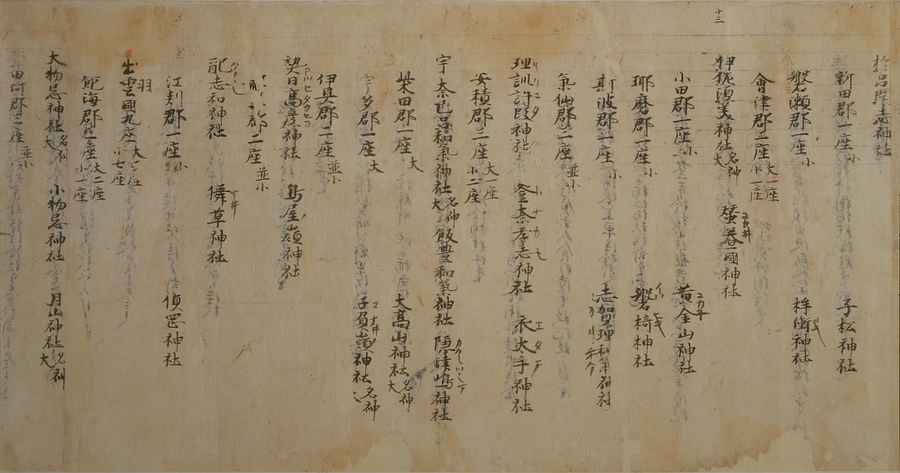 十三
新田郡一座小 子松神社
磐瀬郡一座小 桙衝神社
會津郡二座大一座小一座
神社大名神 蚕養國神社
小田郡一座小 黄金山神社
耶麻郡一座小 磐椅神社
斯波郡一座小 志賀理和氣神社
氣仙郡三座並小
理訓許段神社 登奈孝志神社 衣太手神社
安積郡三座大一座小二座
宇奈己呂和氣神社名神大 飯豊和氣神社 隠津嶋神社
柴田郡一座大 大高山神社名神大
宇多郡一座大 子負嶺神社名神
伊具郡二座並小
熱日高彦神社 鳥屋嶺神社
郡二座並小
配志和神社 儛草神社
江刺郡一座小 鎮岡神社
出羽國九座大二座小七座
飽海郡三座大二座小一座
大物忌神社名神大 小物忌神社 月山神社名神大
田川郡三座並小